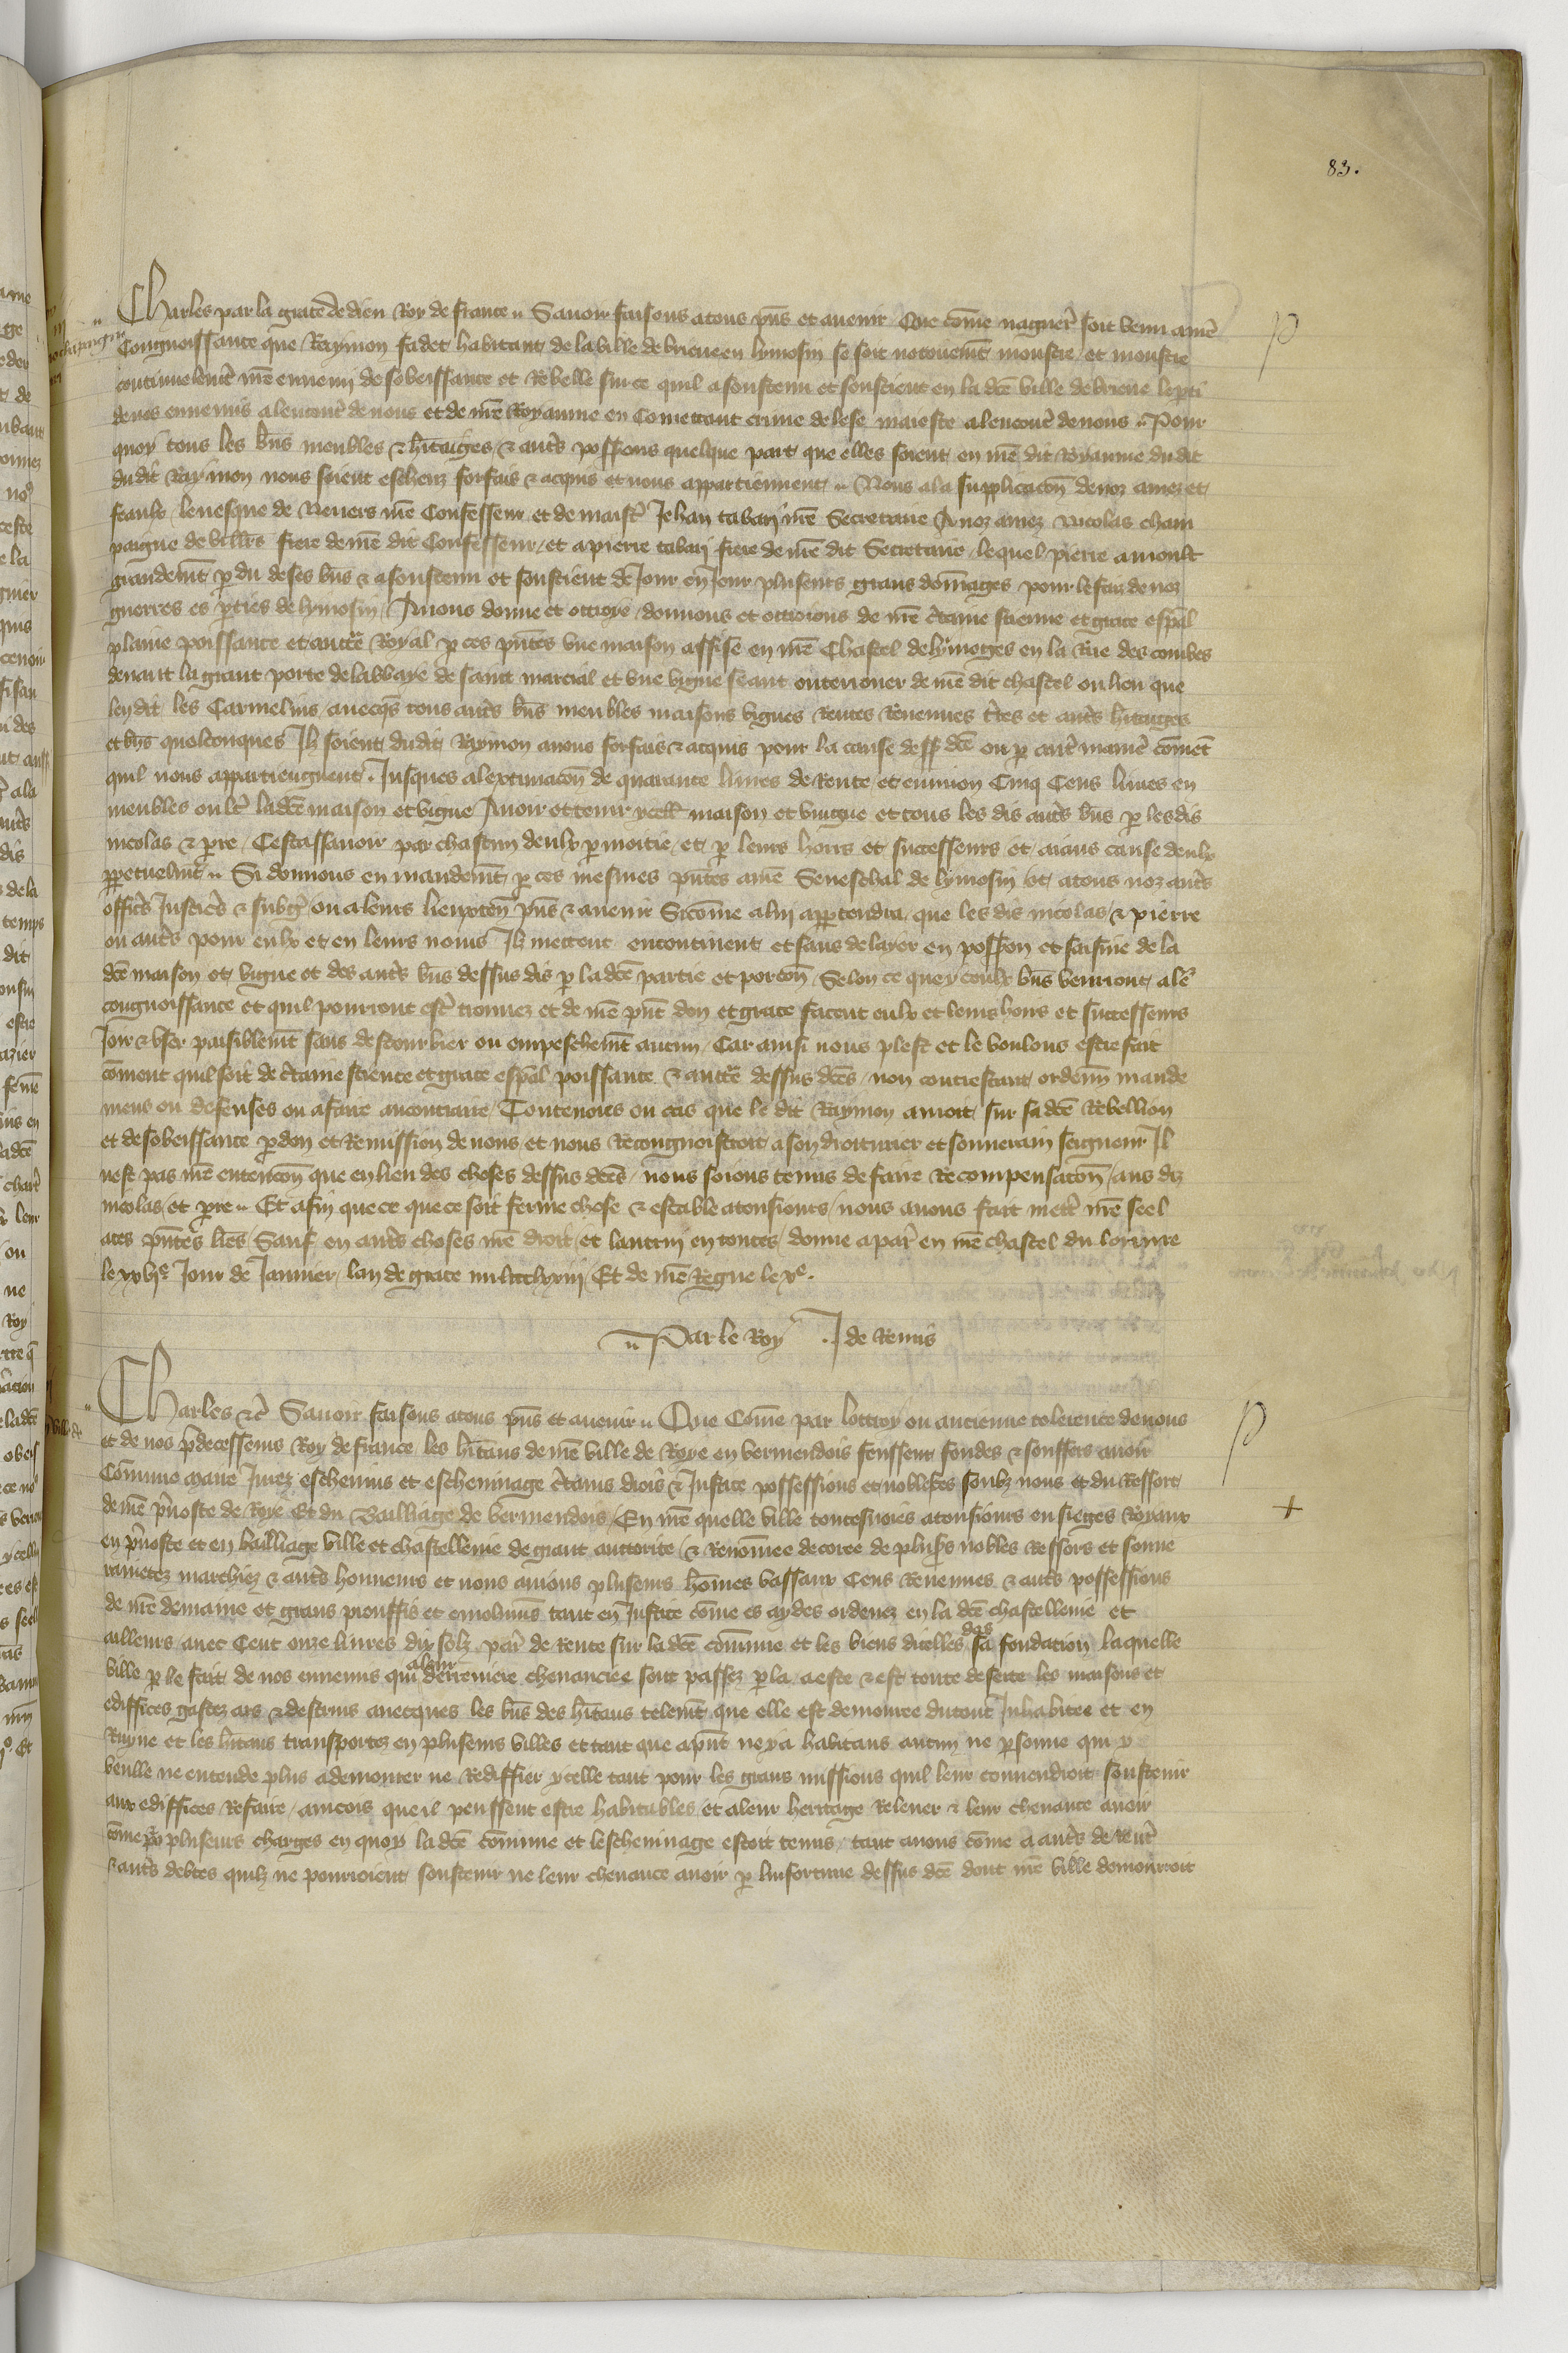 83.
Charles par la grace de dieu Roy de france. Savoir faisons a tous pns et avenir Que come naguer soit venu a nre
Congnoissance que Raymon fadet habitant de la ville de brieue en lymosin se soit notoiremt monstre et monstre
continuelmt nre ennemi desobeissance et Rebelle sur ce quil a soustenu et soustient en la dce ville de brieue le pti
de nos ennemis alencontr de nous et de nre Royaume en Comettant crime de lese maieste alencontr de nous. Pour
quoy tous les bns meubles & hitaiges & autrs possions quelque part que elles soient en nre dit Royaume du dit
dudit Raymon nous soient escheuz forfais & acquis et nous appartiennent. Nous a la supplicacon de noz amez et
feaulx levesque de Nevers nre Confesseur et de maistr Jehan tabari nre Secretaire A noz amez Nicolas cham
paigne de villes frere de nre dit Confesseur et a pierre tabari frere de nre dit Secretaire lequel pierre a moult
grandemt pdu de ses bns & a soustenu et soustient de Jour en Jour pluseurs grans dommages pour le fait de noz
guerres es pties de lymosin Avons donne et ottroye donnons et ottroions de nre ctaine science et grace espal
plaine poissance et auctte Royal p ces pntes une maison assise en nre Chastel de lymoges en la Rue des combes
devant la grant porte de labbaye de saint marcial et une vigne seant ou terrouer de nre dit chastel ou lieu que
len dit les Carmelins avecqs tous autrs bns meubles maisons vignes Rentes Revenues tres et autrs hitaiges
et bns quelconques Ilz soient dudit Raymon a nous forfais & acquis pour la cause dessdce ou p autr manier coment
quil nous appartiengnent. Jusques a lextimacon de quarante livres de Rente et environ Cinq Cens livres en
meubles oultr ladce maison et vigne Avoir et tenir ycelle maison et vingne et tous les dis autrs bns p lesdis
nicolas & pre Cestassavoir par chascun deulx p moitie et p leurs hoirs et successeurs et aians cause deulx
ppetuelmt. Si donnons en mandemt p ces mesmes pntes a nre Seneschal de lymosin et a tous noz autrs
officrs Justicrs & subgz ou a leurs lieuxten pns & avenir Sicome a lui appartendra que les dis nicolas & pierre
ou autrs pour eulx et en leurs noms Ilz mettent encontinent et sans delayer en possion et saisine de la
dce maison et vigne et des autrs bns dessus dis p ladce partie et porcon Selon ce que yceulx bns venront a le
congnoissance et quil pourront estr trouvez et de nre pnt don et grace facent eulx et leurs hoirs et successeurs
Joir & user paisiblemt sans destourbier ou empeschemt aucun Car ainsi nous plest et le voulons estre fait
coment quil soit de ctaine science et grace espal poissance & auctte dessus dces non contrestant ordenn mande
mens ou defenses ou a faire au contraire Toutevoies ou cas que le dit Raymon auroit sur sadce Rebellion
et desobeissance pdon et Remission de nous et nous Recongnoisteroit a son droiturier et souverain seigneur Il
nest pas nre entencon que en lieu des choses dessus dces nous soions tenus de faire Recompensacon aus diz
nicolas et pre. Et afin que ce que ce soit ferme chose & estable a tousiours nous avons fait mettr nre seel
a ces pntes lres Sauf en autrs choses nre droit et lautrui en toutes donne a par en nre chastel du louvre
le xxvie Jour de Janvier lan de grace mil ccclxxiii Et de nre Regne le xe.
Par le Roy J de Remis
Charles &c Savoir faisons a tous pns et avenir. Que Come par lottroy ou ancienne tolerence de nous
et de nos pdecesseurs Roy de france les hitans de nre ville de Roye en vermendois feussent fondes & souffers avoir
Commune maire Jurez eschevins et eschevinage ctains drois & Justice possessions et noblesces soubz nous et du Ressort
de nre pvoste de Roye Et du Bailliage de vermendois En nre quelle ville toutesvoies a tousiours eu sieges Royaux
en pvoste et en bailliage ville et chastellenie de grant auctorite & Renomee decoree de plusrs nobles Ressors et souve
rainetez marchiez & autrs honneurs et nous avions pluseurs homes vassaux Cens Revenues & autrs possessions
de nre demaine et grans prouffis et emolumens tant en Justice come es aydes ordenez en la dce chastellenie et
ailleurs avec Cent onze livres dix solz par de Rente sur ladce commune et les biens dicelles des sa fondacion laquelle
ville p le fait de nos ennemis qui a leur derreniere chevauciee sont passez p la a este & est toute deserte les maisons et
ediffices gastez ars & destruis avecques les bns des hitans telemt que elle est demouree du tout Inhabitee et en
Ruyne et les hitans transportez en pluseurs villes et tant que apnt ne y a habitans aucun ne psonne qui y
veulle ne entende plus a demourer ne Rediffier ycelle tant pour les grans missions quil leur convendroit soustenir
aux ediffices Refaire aincois que il peussent estre habitables et a leur heritage Relever & leur chevance avoir
come po pluseurs charges en quoy la dce comune et leschevinage estoit tenus tant a nous come a autrs de rente
& autrs debtes quilz ne pourroient soustenir ne leur chevance avoir p linfortune dessus dce dont nre ville demourroit